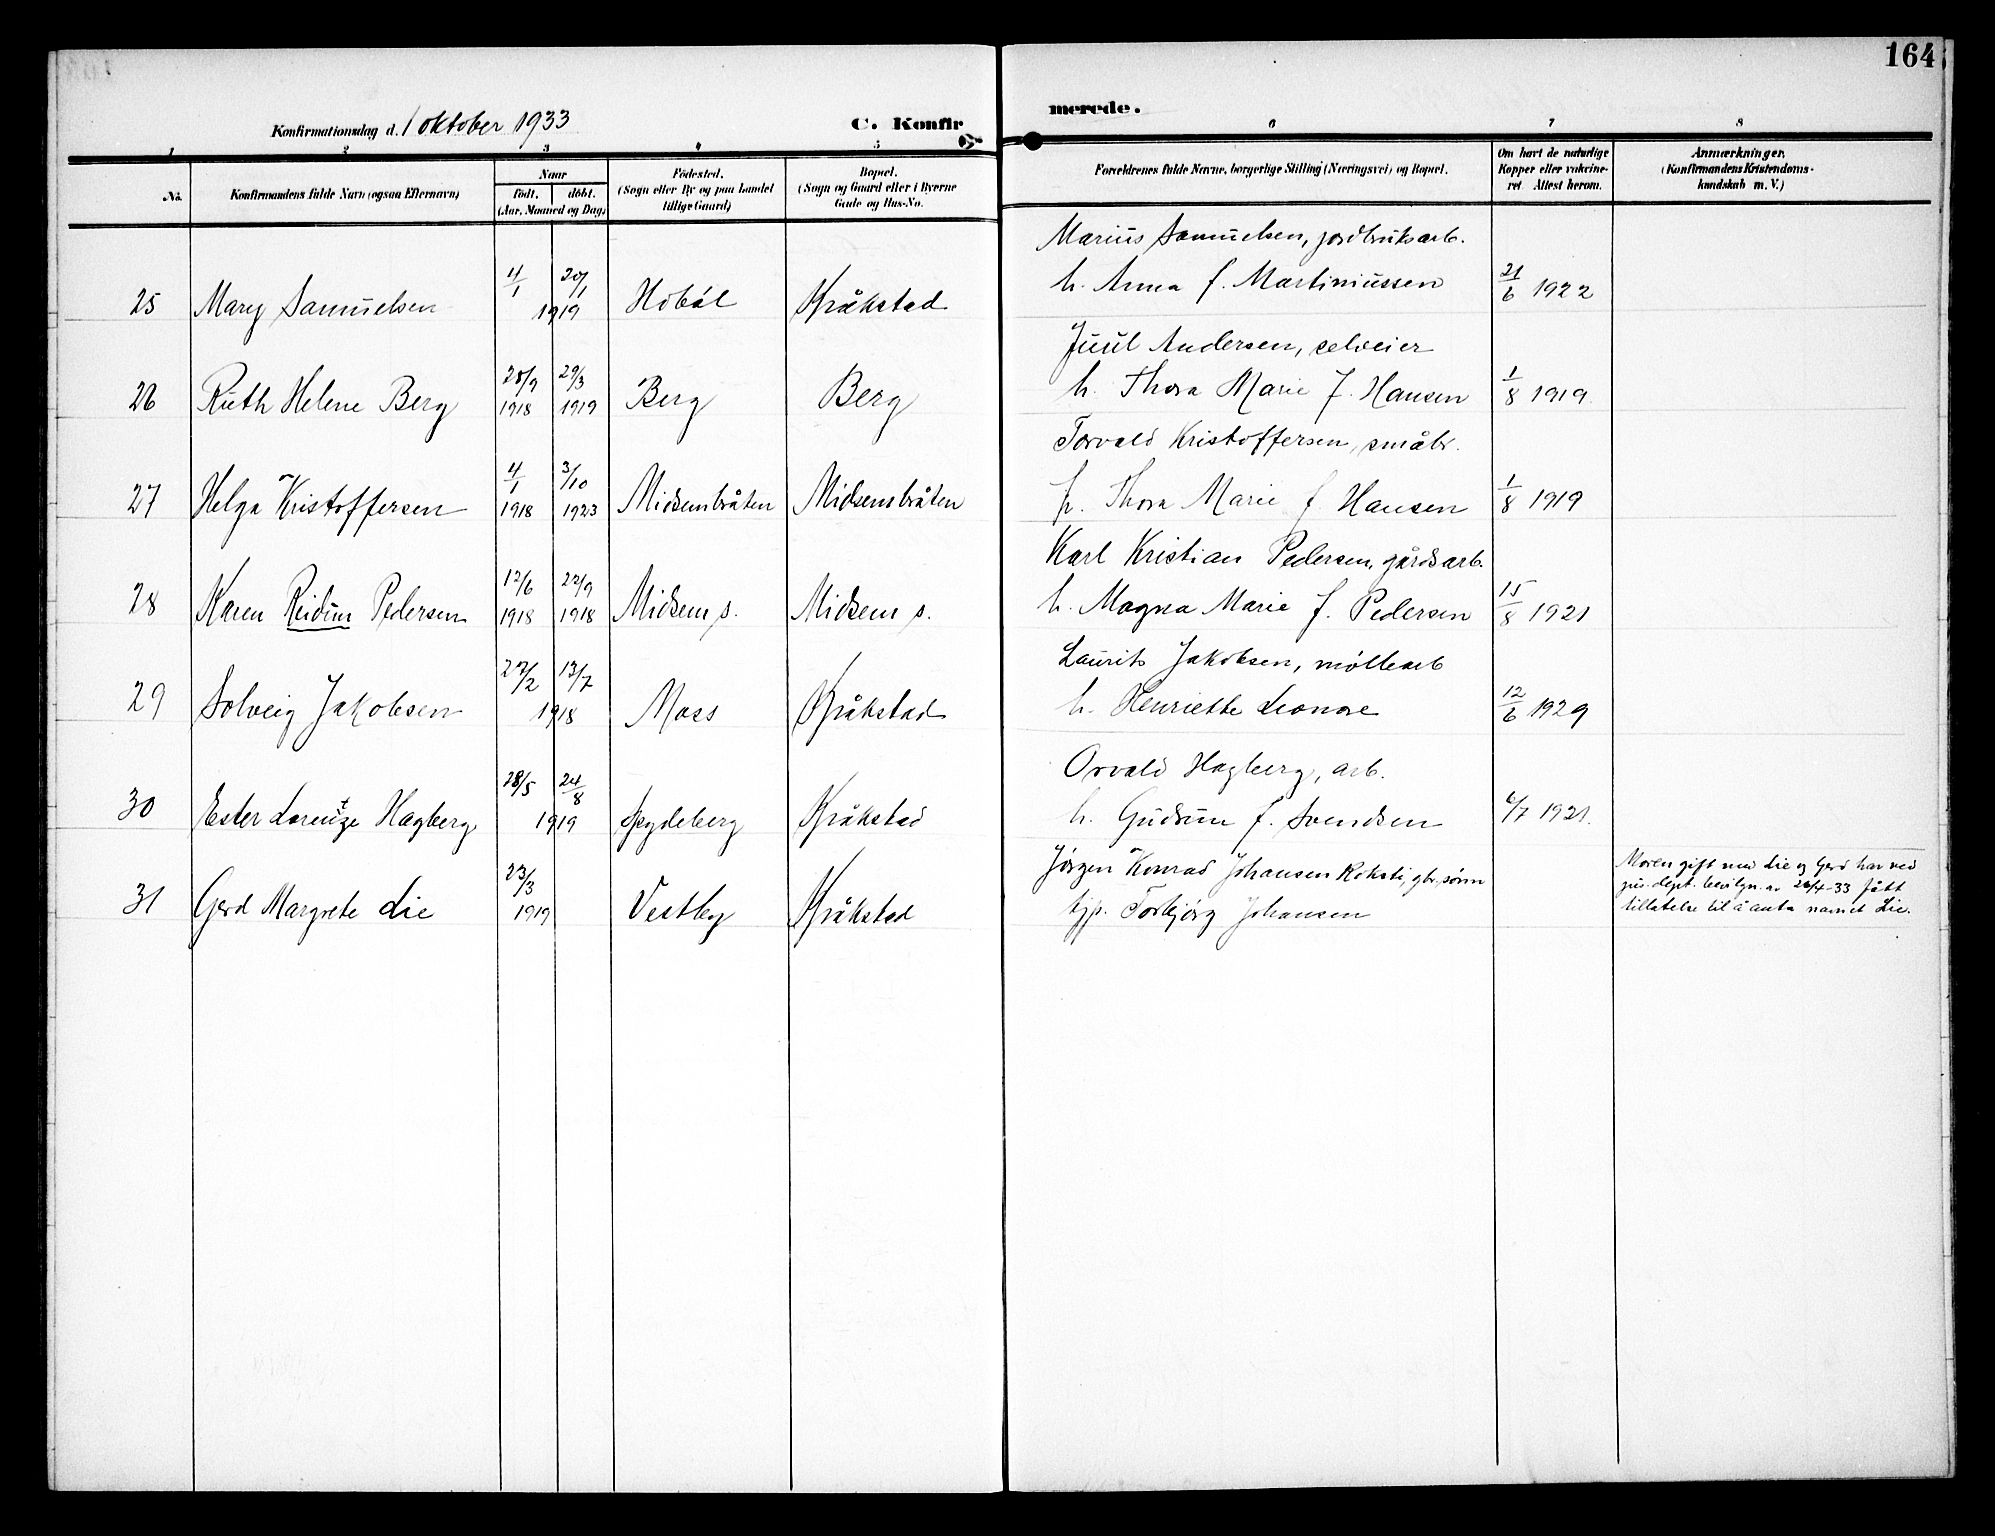 164
Konfirmationsdag d. 1 oktober 1933
C. Konfir
merede.
1 2 3 4 5 6 7 8
No.
Konfirmandens fulde Navn (ogsaa Efternavn)
Naar
født. døbt.
(Aar, Maaned og Dag)
Fødested.
(Sogn eller By og paa Landet
tillige Gaard)
Bopæl.
(Sogn og Gaard eller i Byerne
Gade og Hus-No.
Forældrenes fulde Navne, borgerlige Stilling (Næringsvei) og Bopæl.
Om havt de naturlige
Kopper eller vakcine-
ret. Attest herom.
Anmærkninger.
(Konfirmandens Kristendoms-
kundskab m. V.)
Marius Samuelsen, jordbruksarb.
25 Mary Samuelsen 4/1 20/1 1919 Hobøl Kråkstad h. Anna f. Martiniussen 21/6 1922
Juul Andersen, selveier
26 Ruth Helene Berg 28/9 1918 29/3 1919 Berg Berg h. Thora Marie f. Hansen 1/8 1919
Torvald Kristoffersen, småbr.
27 Helga Kristoffersen 4/1 1918 3/10 1923 Midsembråten Midsembråten h. Thora Marie f Hansen 1/8 1919
Karl Kristian Pedersen, gårdsarb.
28 Karen Reidun Pedersen 12/6 1918 22/9 1918 Midsem s. Midsem s. h. Magna Marie f. Pedersen 15/8 1921
Laurits Jakobsen, møllearb
29 Solveig Jakobsen 27/2 13/7 1918 Moss Kråkstad h. Henriette Leonore 12/6 1929
Orvald Hagberg, arb.
30 Ester Lorentze Hagberg 28/5 24/8 1919 Spydeberg Kråkstad h. Gudrun f. Svendsen 6/7 1921.
Jørgen Konrad Johansen Roksti, gbr.sønn
31 Gerd Margrete Lie 23/3 1919 Vestby Kråkstad pp. Torbjørg Johansen
Moren gift med Lie og Gerd har ved
jus.dept. bevilgn. av 26/4-33 fått
tillatelse til å anta navnet Lie.